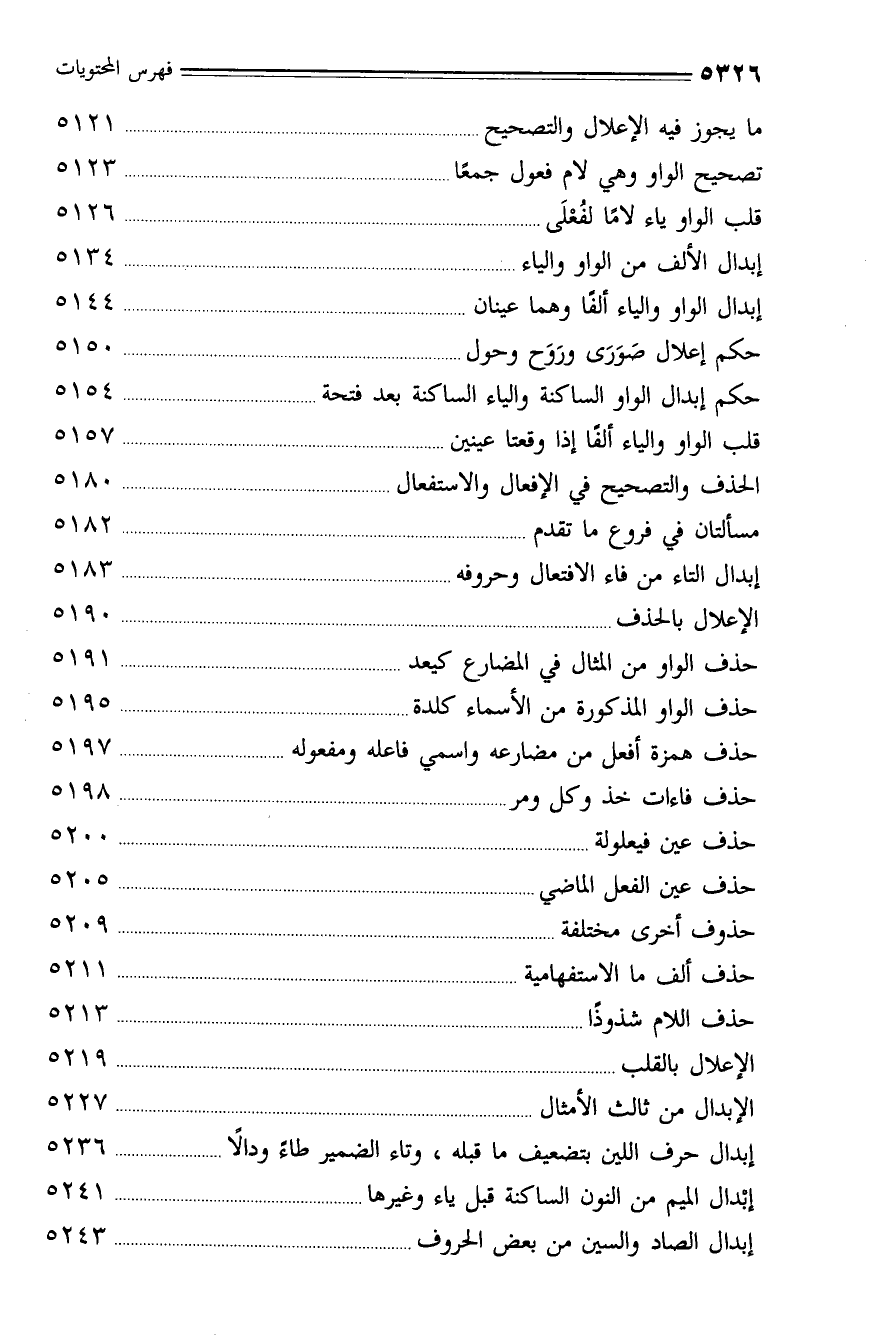 ٥٣٢٦ فهرس المحتويات
ما يجوز فيه الإعلال والتصحيح ٥١٢١
تصحيح الواو وهي لام فعول جمعًا ٥١٢٣
قلب الواو ياء لامًا لفُعْلَى ٥١٢٦
إبدال الألف من الواو والياء ٥١٣٤
إبدال الواو والياء ألفًا وهما عينان ٥١٤٤
حكم إعلال صَوَرَى ورَوَح وحول ٥١٥٠
حكم إبدال الواو الساكنة والياء الساكنة بعد فتحة ٥١٥٤
قلب الواو والياء ألفًا إذا وقعتا عينين ٥١٥٧
الحذف والتصحيح في الإفعال والاستفعال ٥١٨٠
مسألتان في فروع ما تقدم ٥١٨٢
إبدال التاء من فاء الافتعال وحروفه ٥١٨٣
الإعلال بالحذف ٥١٩٠
حذف الواو من المثال في المضارع كيعد ٥١٩١
حذف الواو المذكورة من الأسماء كلدة ٥١٩٥
حذف همزة أفعل من مضارعه واسمي فاعله ومفعوله ٥١٩٧
حذف فاءات خذ وكل ومر ٥١٩٨
حذف عين فيعلولة ٥٢٠٠
حذف عين الفعل الماضي ٥٢٠٥
حذوف أخرى مختلفة ٥٢٠٩
حذف ألف ما الاستفهامية ٥٢١١
حذف اللام شذوذًا ٥٢١٣
الإعلال بالقلب ٥٢١٩
الإبدال من ثالث الأمثال ٥٢٢٧
إبدال حرف اللين بتضعيف ما قبله ، وتاء الضمير طاءً ودالًا ٥٢٣٦
إبْدال الميم من النون الساكنة قبل ياء وغيرها ٥٢٤١
إبدال الصاد والسين من بعض الحروف ٥٢٤٣